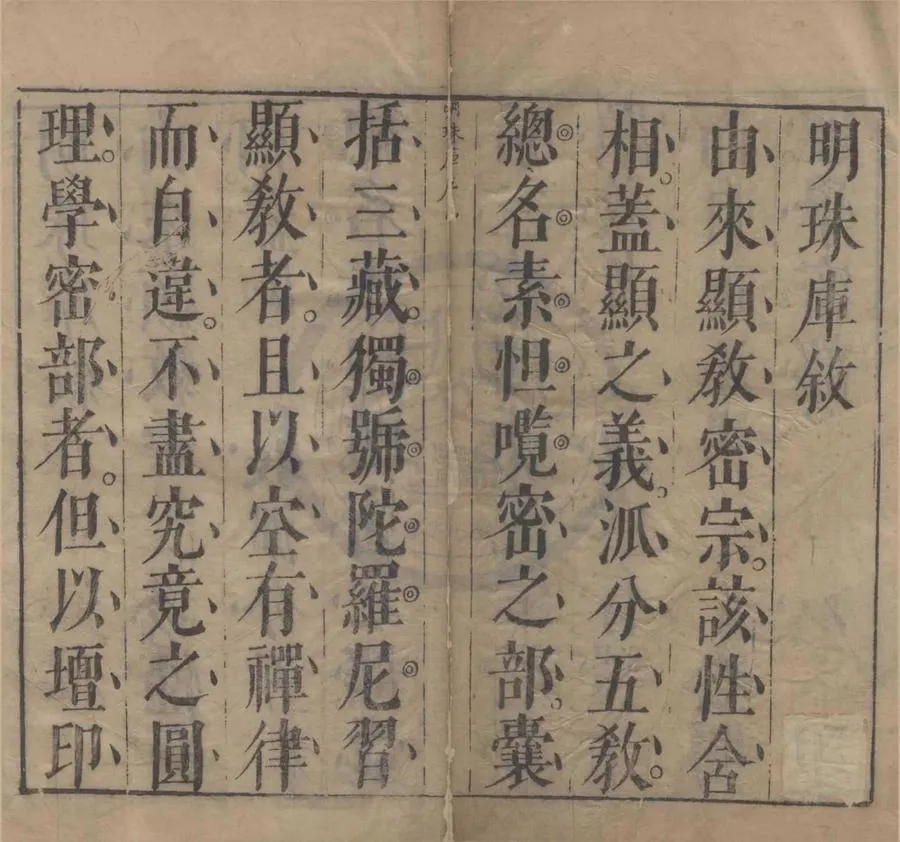 明珠庫敘
由來顯教密宗。該性含
相。蓋顯之義。派分五教。
總名素怛囕密之部。囊
括三藏。獨號陀羅尼習
顯教者。且以空有禪律
而自違。不盡究竟之圓
理。學密部者。但以壇印